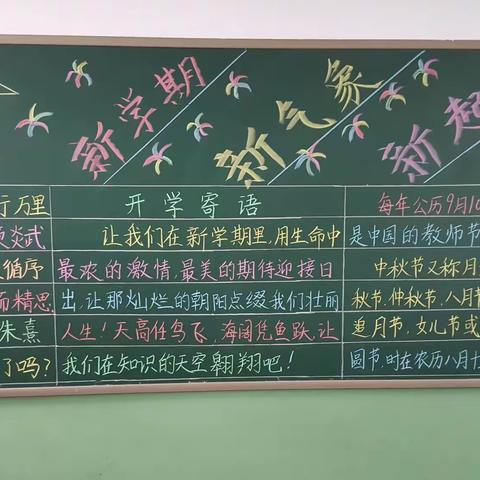 新学期
新气象
新超
行万里
炎武
循序
而精思
朱熹
了吗?
开学寄语
让我们在新学期里,用生命中
最浓的激情,最美的期待迎接日
出,让那灿烂的朝阳点缀我们壮丽
人生!天高任鸟飞,海阔凭鱼跃,让
我们在知识的天空翱翔吧!
每年公历9月10
是中国的教师节
中秋节又称月
秋节、仲秋节、八月节
追月节、女儿节或
圆节,时在农历八月十